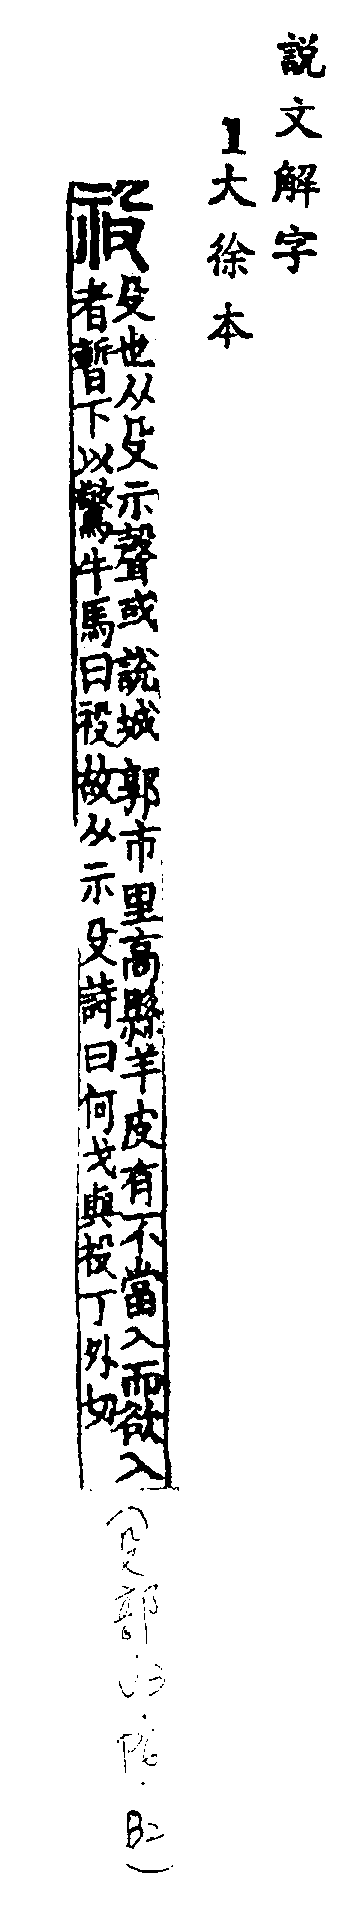 説文解字
1大徐本
祋
殳也从殳示聲或説城郭市里高縣羊皮有不當入而欲入
者暫下以驚牛馬曰祋故从示殳詩曰何戈與祋丁外切
(殳部.V3.P6.B2)